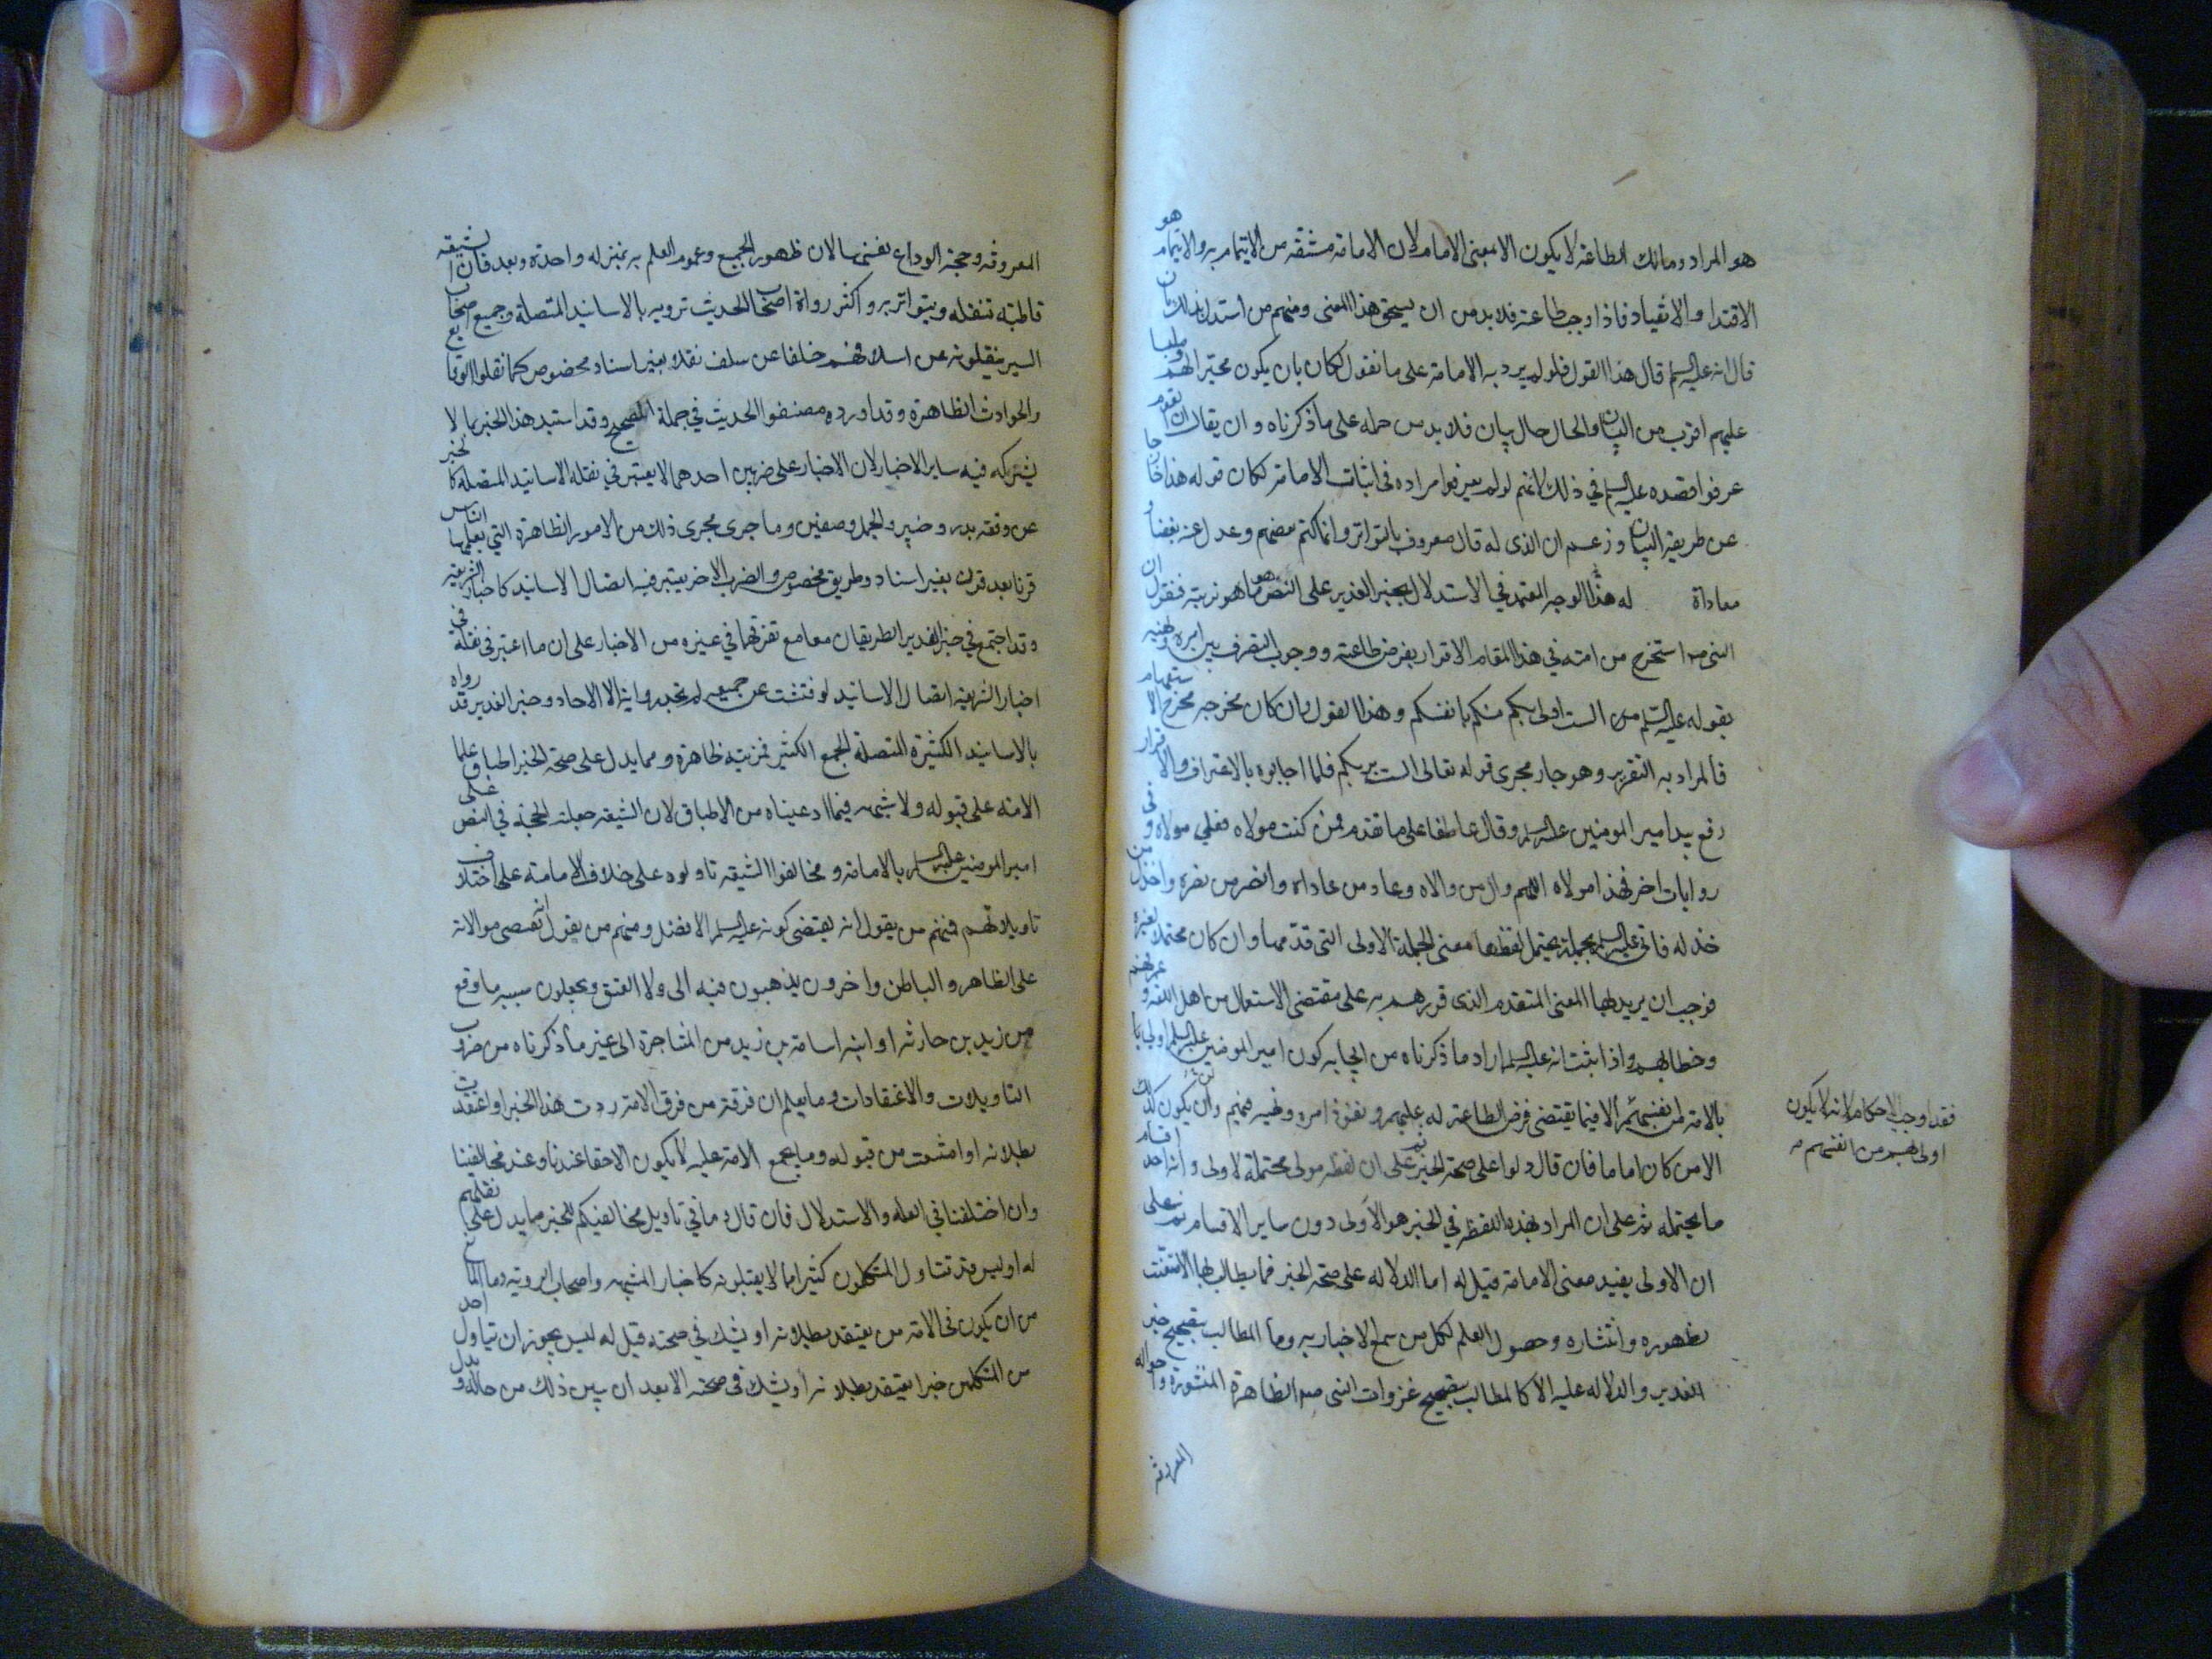 هو المراد ومالك الطاعة لا يكون الا بمعنى الامام لان الامامة مشتقه من الايتمام به والايتمام هو
الاقتداء والانقياد فاذا وجب طاعته فلا بد من ان يستحق هذا المعنى ومنهم من استدل بذلك بان
قال انه عليه السلم قال هذا القول فلو لم يرد به الامامة على ما نقول لكان بان يكون محيرا لهم وملبسا
عليهم اقرب من البيان والحال حال بيان فلا بد من حمله على ما ذكرناه وان يقال ان القوم
عرفوا قصده عليه السلم في ذلك لانهم لو لم يعرفوا مراده في اثبات الامامة لكان قوله هذا خارجا
عن طريقة البيان وزعم ان الذى له قال معروف بالتواتر وانما كتم بعضهم وعدل عنه بغضا و
معاداة له هذا الوجه المعتمد في الاستدلال بخبر الغدير على النص هو ما هو نرتبه فنقول ان
النبى صم استخرج من امته في هذا المقام الاقرار بفرض طاعته ووجوب التصرف بين امره ونهيه
بقوله عليه السلم الست اولى بكم منكم بانفسكم وهذا القول وان كان مخرجه مخرج الاستفهام
فالمراد به التقرير وهو جار مجرى قوله تعالى الست بربكم فلما اجابوه بالاعتراف والاقرار
رفع بيد امير المومنين عليه السلم وقال عاطفا على ما تقدم فمن كنت مولاه فعلي مولاه وفى
روايات اخر فهذا مولاه اللهم وال من والاه وعاد من عاداه وانصر من نصره واخذل من
خذله فاتى عليه السلم بجملة يحتمل لفظها معنى الجملة الاولى التى قدمها وان كان محتملا لغيره
فوجب ان يريد بها المعنى المتقدم الذى قررهم به على مقتضى الاستعمال من اهل اللغه وعرفهم
وخطابهم واذا ثبت انه عليه السلم اراد ما ذكرناه من ايجابه كون امير المومنين عليه السلم اولى با
بالامة من نفسهم الا فيما يقتضى فرض الطاعة له عليهم ونفوذ امره ونهيه فيهم ولن يكون كذلك
فقد اوجب الاحكام لانه لا يكون
اولى بهم من انفسهم
الا من كان اماما فان قال دلوا على صحة الخبر ثم على ان لفظه مولى محتملة لاولى وانه احد اقسام
ما يحتمله ثم على ان المراد بهذه اللفظه في الخبر هو الاولى دون ساير الاقسام ثم على
ان الاولى يفيد معنى الامامة قيل له اما الدلاله على صحة الخبر فما يطالب بها الا متعنت
لظهوره وانتشاره وحصول العلم لكل من سمع الاخبار به وما المطالب بتصحيح خبر
الغدير والدلاله عليه الا كالمطالب بتصحيح غزوات النبى صم الظاهرة المنثورة واحواله
المعروفة
المعروفه وحجة الوداع نفسها لان ظهور الجميع وعموم العلم به بمنزله واحدة وبعد فان الشيعه
قاطبة تنقله ويتواتر به واكثر رواة اصحاب الحديث ترويه بالاسانيد المتصلة وجميع اصحاب
السير ينقلونه عن اسلافهم خلفا عن سلف نقلا بغير اسناد مخصوص كما نقلوا الوقايع
والحوادث الظاهرة وقد اورده مصنفوا الحديث في جملة الصحيح وقد استبد هذا الخبر بما لا
يشركه فيه ساير الاخبار لان الاخبار على ضربين احدهما لا يعتبر في نقله الاسانيد المتصله كالخبر
عن وقعه بدر وخيبر والجمل وصفين وما جرى مجرى ذلك من الامور الظاهرة التي يعلمها الناس
قرنا بعد قرن بغير اسناد وطريق مخصوص والضرب الاخر يعتبر فيه اتصال الاسانيد كاخبار الشريعة
وقد اجتمع في خبر الغدير الطريقان معا مع تفرقهما في غيره من الاخبار على ان ما اعتبر في نقله فى
اخبار الشريعة اتصال الاسانيد لو فتشت عن جميعه لم تجد روايته الا الاحاد وخبر الغدير قد رواه
بالاسانيد الكثيرة المتصلة الجمع الكثير فمزيته ظاهرة ومما يدل على صحة الخبر اطباق علما
الامه على قبوله ولا شبهه فيما ادعيناه من الاطباق لان الشيعه جعلته الحجة في النص على
امير المومنين عليه السلم بالامامة ومخالفوا الشيعه تاولوه على خلاف الامامة على اختلاف
تاويلاتهم فمنهم من يقول انه يقتضى كونه عليه السلم الافضل ومنهم من يقول انه يقتضى موالاته
على الظاهر والباطن واخرون يذهبون فيه الى ولا العتق ويجعلون سببه ما وقع
من زيد بن حارثه او ابنه اسامة بن زيد من المشاجرة الى غير ما ذكرناه من ضروب
التاويلات والاعتقادات وما يعلم ان فرقة من فرق الامة ردت هذا الخبر او اعتقدت
بطلانه او امتنعت من قبوله وما يجمع الامة عليه لا يكون الا حقا عندنا وعند مخالفينا
وان اختلفنا في العله والاستدلال فان قال وما في تاويل مخالفيكم للخبر ما يدل على نقلهم
له اوليس قد تتاول المتكلمون كثيرا مما لا يقبلونه كاخبار المشبهه واصحاب الرويه وما المانع
من ان يكون فى الامة من يعتقد بطلانه او يشك في صحته قيل له ليس يجوز ان يتاول احد
من المتكلمين خبرا يعتقد بطلانه او يشك في صحته الا بعد ان يبين ذلك من حاله ويدل